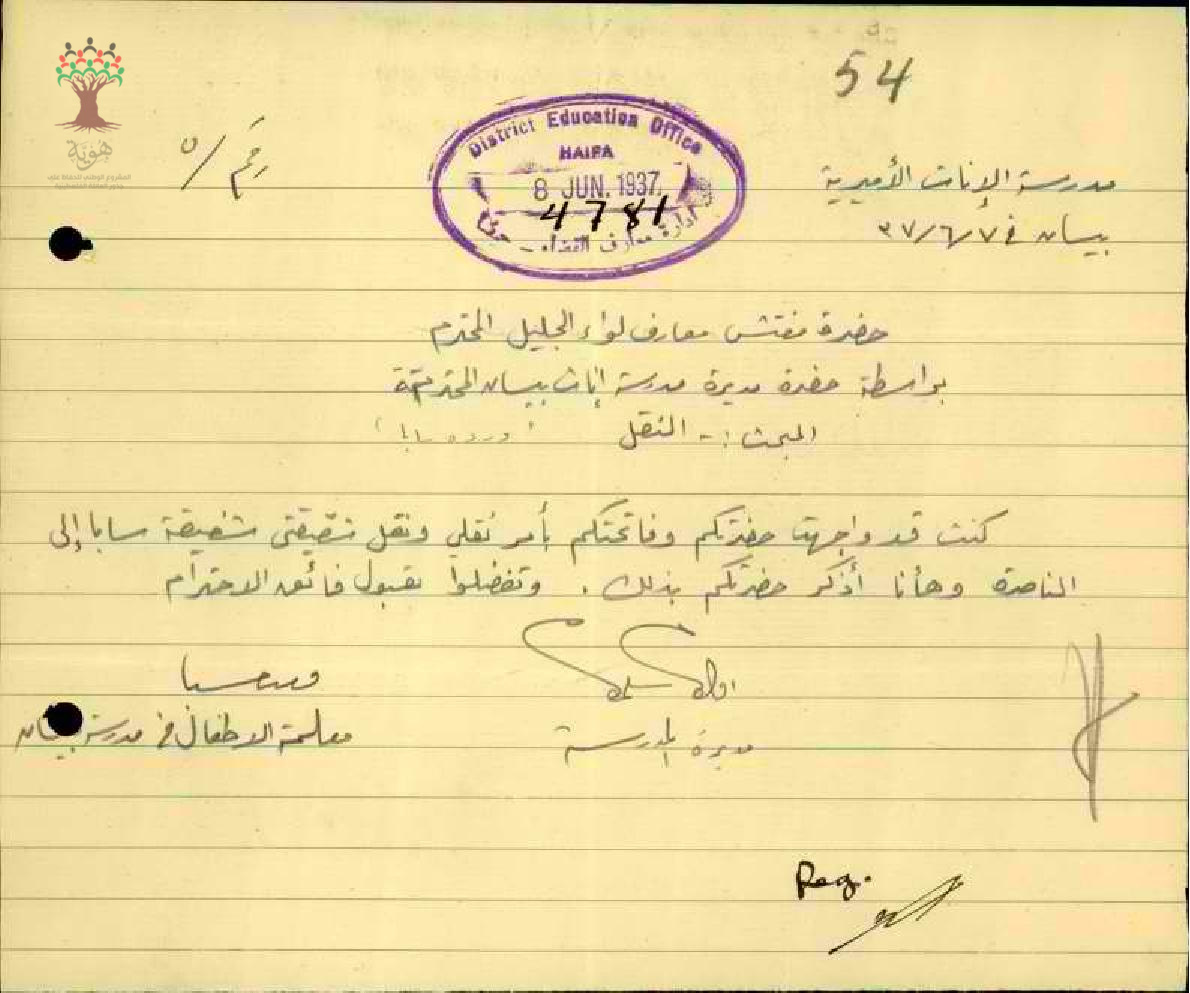 54
مدرسة الإناث الأميرية
بيسان في ٣٧/٦/٧
رقم / ٥
District Education Office
HAIFA
8 JUN. 1937
4781
ادارة معارف القضاء - حيفا
هوية
حضرة مفتش معارف لواء الجليل المحترم
بواسطة حضرة مديرة مدرسة إناث بيسان المحترمة
المبحث :- النقل "ورده سابا"
كنت قد واجهت حضرتكم وفاتحتكم بأمر نقلي ونقل شقيقتي شفيقة سابا إلى
الناصرة وهأنا أذكر حضرتكم بذلك . وتفضلوا بقبول فائق الاحترام
مديرة المدرسة
معلمة الاطفال في مدرسة بيسان
Reg.